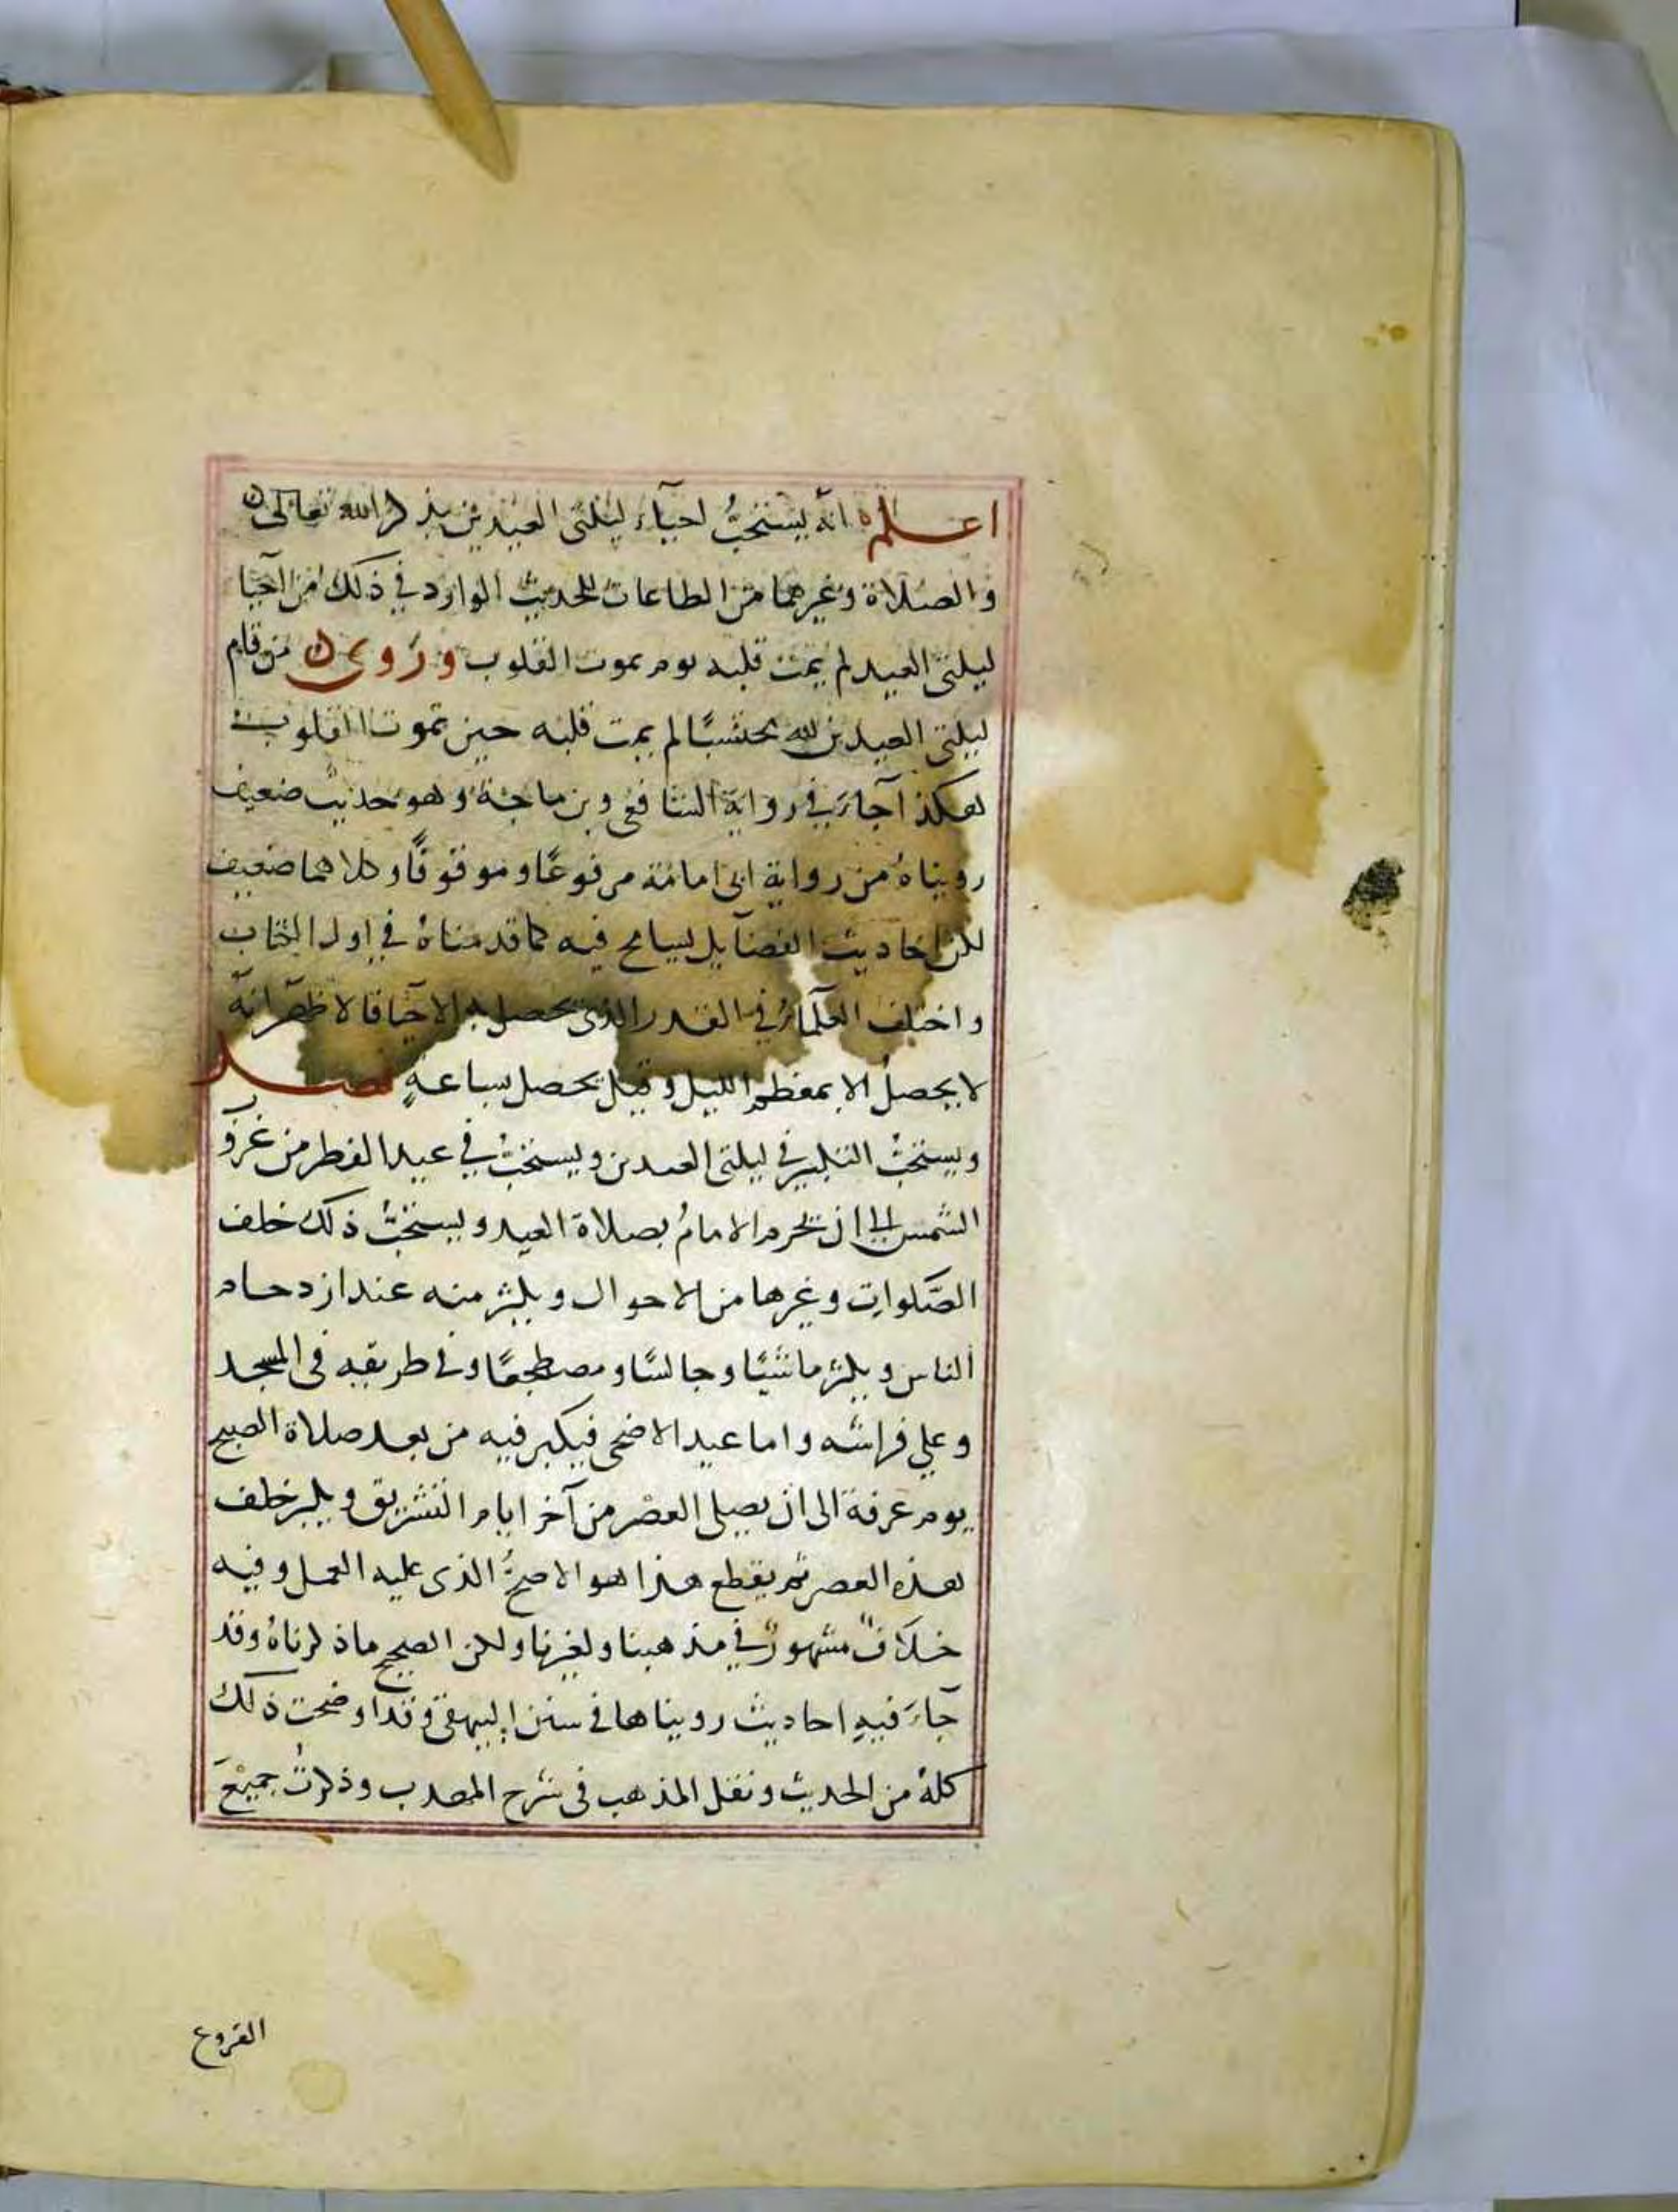 اعلم انه يستحبُّ احيآء ليلتى العيدين بذكر الله تعالى
والصلاة وغيرهما من الطاعات للحديث الوارد في ذلك من احيا
ليلتى العيد لم يمت قلبه يوم يموت القلوب وروى من قام
ليلتى العيدين لله محتسبًا لم يمت قلبه حين تموت القلوب
هكذا جآء في رواية الشافعى وبن ماجة وهو حديث ضعيف
رويناهُ من رواية ابى امامة مرفوعًا وموقوفًا وكلاهما ضعيف
لكن احاديث الفضآيل يسامح فيه كما قدمناهُ في اول الكتاب
واختلف العلمآءُ في القدر الذى يحصل به الاحيا فالاظهر انه
لا يحصلُ الا بمعظم الليل وقيل يحصل بساعةٍ فصل
ويستحبُّ التكبير في ليلتى العيدين ويستحبُّ في عيد الفطر من غروب
الشمس الى ان يحرم الامامُ بصلاة العيد ويستحبُّ ذلك خلف
الصَّلوات وغيرها من الاحوال ويكثر منه عند ازدحام
الناس ويكبر ماشيًا وجالسًا ومضطجعًا وفى طريقه فى المسجد
وعلي فراشه واما عيد الاضحى فيكبر فيه من بعد صلاة الصبح
يوم عرفة الى ان يصلى العصر من آخر ايام التشريق ويكبر خلف
هذه العصر ثم يقطع هذا هو الاصحُّ الذى عليه العمل وفيه
خلافٌ مشهورٌ في مذهبنا ولغيرنا ولكن الصحيح ماذكرناهُ وقد
جآءَ فيهِ احاديث رويناها فى سنن البيهقى وقد اوضحت ذلك
كلهُ من الحديث ونقل المذهب فى شرح المهذب وذكرتُ جميعَ
الفروع